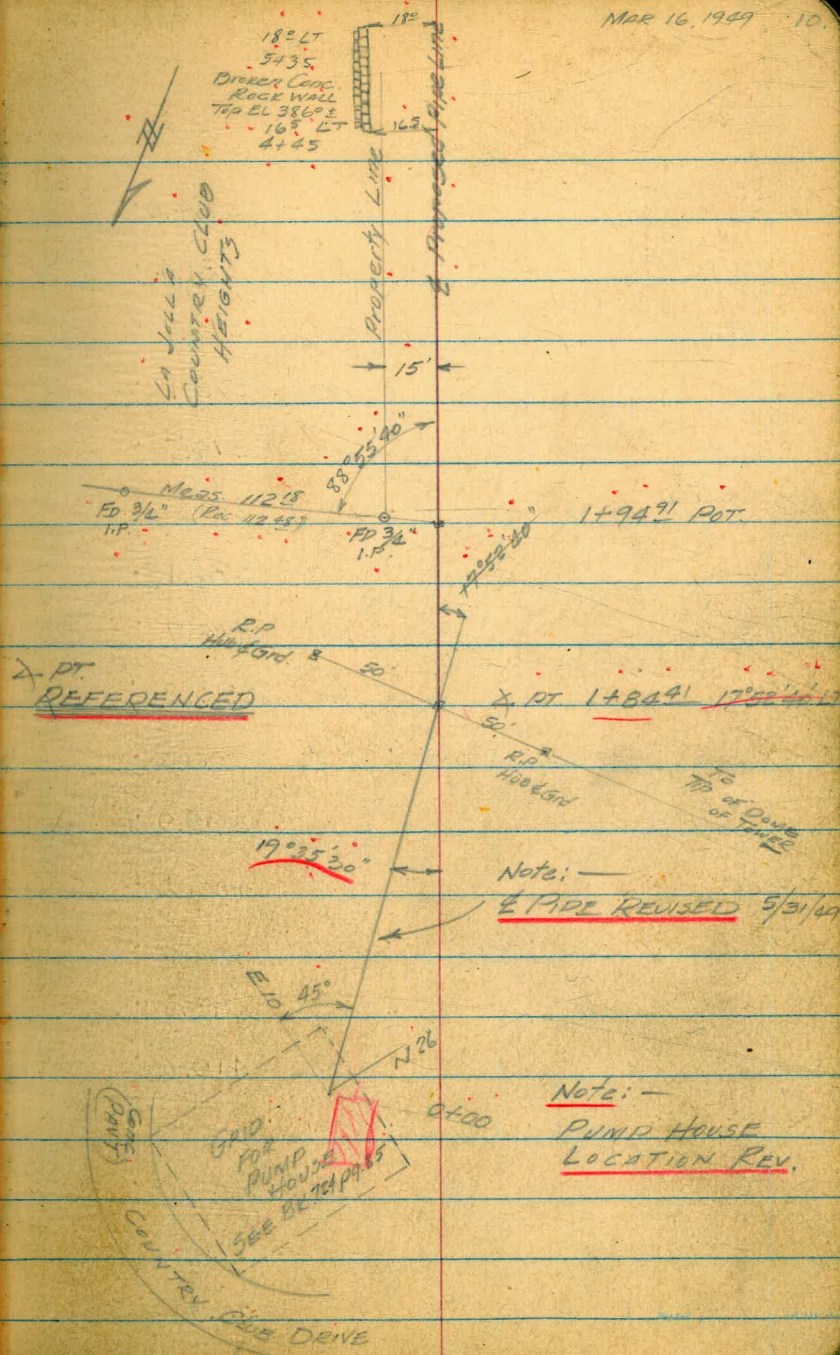 MAR 16, 1949 10.
18⁰ LT
5+35
Broken Conc.
ROCK WALL
Top EL 386⁰ ±
16⁵ LT
4+45
18⁰
16⁵
Property Line
℄ Proposed Pipe Line
LA JOLLA
COUNTRY CLUB
HEIGHTS
15'
88°55'40"
Meas. 112.18
(Rec. 112.48)
FD. 3/4"
I.P.
FD 3/4"
I.P.
1+94.91 P.O.T.
17°52'40"
R.P.
Hub & Grd.
50'
∠ PT.
REFERENCED
∠ PT 1+84.41 17°52'40"
50'
R.P.
Hub & Grd
To
Tip of Dome
of Tower
19°35'30"
Note: —
℄ PIPE REVISED 5/31/49
E 10
45°
N 26
0+00
GRID
FOR
PUMP
HOUSE
SEE BK. 724 Pg. 65
Note: —
PUMP HOUSE
LOCATION REV.
Conc
(Pavt)
COUNTRY CLUB DRIVE